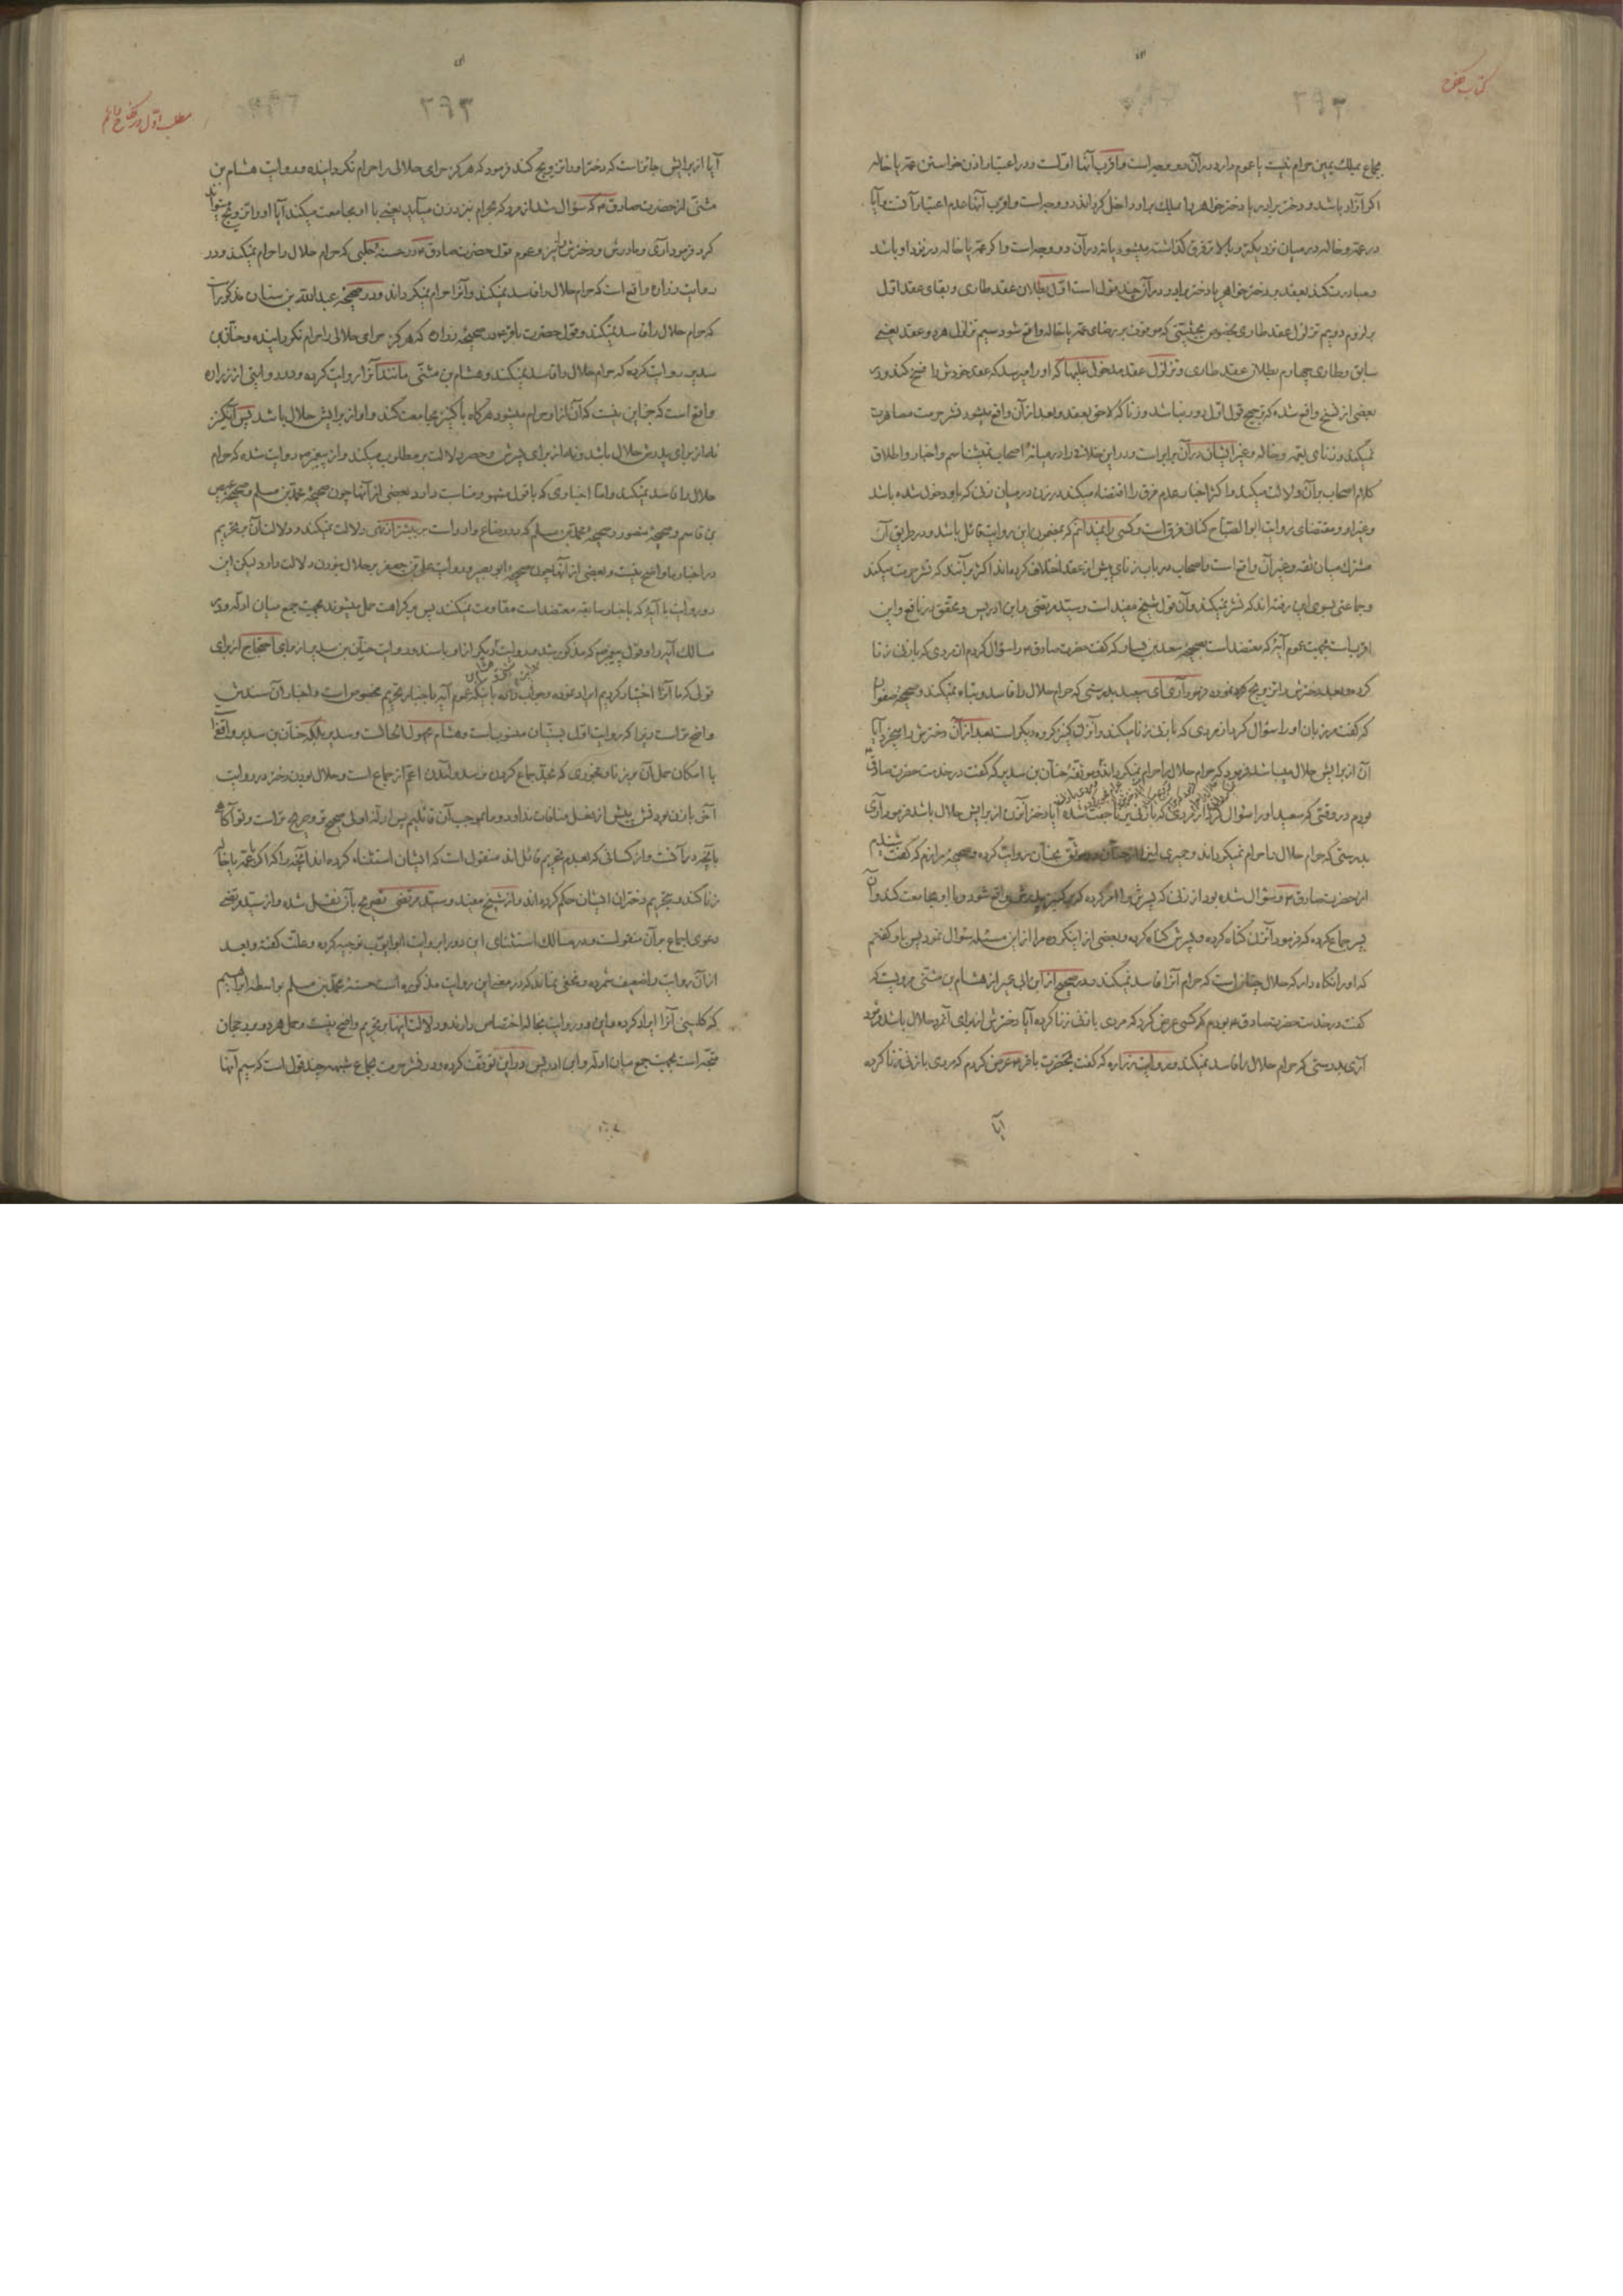 کتاب نکاح
۳۹۳
جماع بملک یمین حرام نیست یا عموم دارد در آن دو وجه است و اقرب آنها اوّلست و در اعتبار اذن خواستن عمّه یا خاله
اگر آزاد باشد و دختر برادر یا دختر خواهر را ملک برادر داخل کرداند دو وجه است و اقرب آنها عدم اعتبار آنست و آیا
در عمّه و خاله در میان نزدیکتر و بالاتر فرق گذاشته میشود یا نه در آن دو وجه است و اگر عمّه یا خاله در نزد او باشد
و مبادرت کند بعقد بر دختر خواهر یا دختر برادر در آن چند قول است اوّل بطلان عقد طاری و بقای عقد اوّل
بر لزوم دویم تزلزل عقد طاری بخصوص بحیثیتی که موقوف بر رضای عمّه یا خاله واقع شود سیم تزلزل هر دو عقد یعنی
سابق و طاری چهارم بطلان عقد طاری و تزلزل عقد مدخول علیها که او را میرسد که عقد خودش را فسخ کند و در
بعضی از نسخ واقع شده که ترجیح قول اوّل دور نباشد و زنا که لاحق بعقد و بعد از آن واقع میشود نشر حرمت مصاهرت
نمیکند و زنای بعمّه و خاله و غیر ایشان در آن برابر است و در این خلافی را در میانهٔ اصحاب نمیشناسم و اخبار و اطلاق
کلام اصحاب بر آن دلالت میکند و اکثر اخبار عدم فرق را اقتضاء میکند در زن در میان زنی که باو دخول شده باشد
و غیر او و مقتضای روایت ابو الصّباح کنانی فرق است و کسی را نمیدانم که بمضمون این روایت قائل باشد و در طریق آن
مشترک میان ثقه و غیر آن واقع است و اصحاب در باب زنای پیش از عقد اختلاف کرده‌اند اکثر برآنند که نشر حرمت میکند
و جماعتی بسوی این رفته‌اند که نشر نمیکند و آن قول شیخ مفید است و سیّد مرتضی و ابن ادریس و محقق در نافع و این
اقرب است بجهت عموم آیه که معتضد است بصحیحهٔ سعید بن یسار که گفت حضرت صادق ع را سؤال کردم از مردی که با زنی زنا
کرده و بعد دخترش را تزویج نموده فرمود آری ای سعید بدرستی که حرام حلال را فاسد و تباه نمیکند و صحیحهٔ صفوان
که گفت مرزبان او را سؤال کرد از مردی که با زنی زنا میکند و آنزن کنیز گروه دیگر است بعد از آن دخترش را میخرد آیا
آن از برایش حلال میباشد فرمود که حرام حلال را حرام نمیکرداند و موثّقهٔ حنان بن سدیر که گفت در خدمت حضرت صادق ع
بودم در وقتی که سعید او را سؤال کرد از مردی که با زنی بزنا جفت شده آیا دختر آنزن از برایش حلال باشد فرمود آری
بدرستی که حرام حلال را حرام نمیکرداند و حمیری این را از حنان موثّق بحنان روایت کرده و صحیحهٔ مرازم که گفت شنیدم
از حضرت صادق ع و سؤال شده بود از زنی که پسرش را امر کرده که بر کنیز پدرش واقع شود و با او مجامعت کند و آن
پسر جماع کرده که فرمود آنزن گناه کرده و پسرش گناه کرده و بعضی از اینگروه مرا از این مسئله سؤال نمود پس باو گفتم
که او را نگاه دار که حلال چنانست که حرام آنرا فاسد نمیکند و در صحیح از ابن ابی عمیر از هشام بن مثنّی مرویست که
گفت در خدمت حضرت صادق ع بودم که کسی عرض کرد که مردی با زنی زنا کرده آیا دخترش از برای آنمرد حلال باشد فرمود
آری بدرستی که حرام حلال را فاسد نمیکند و روایت زراره که گفت بحضرت باقر ع عرض کردم که مردی با زنی زنا کرده
آیا
مطلب اوّل در نکاح دائم
۳۹۳
آیا از برایش جائز است که دختر او را تزویج کند فرمود که هرگز حرامی حلالی را حرام نگردانیده و روایت هشام بن
مثنّی از حضرت صادق ع که سؤال شد از مردی که بحرام نزد زن میآید یعنی با او مجامعت میکند آیا او را تزویج میتواند
کرد فرمود آری و مادرش و دخترش را نیز و عموم قول حضرت صادق ع در حسنهٔ حلبی که حرام حلال را حرام نمیکند و در
روایت زراره واقع است که حرام حلال را فاسد نمیکند و آنرا حرام نمیکرداند و در صحیحهٔ عبدالله بن سنان مذکور است
که حرام حلال را فاسد نمیکند و قول حضرت باقر ع در صحیحهٔ زراره که هرگز حرامی حلالی را حرام نگردانیده و حنان بن
سدیر روایت کرده که حرام حلال را فاسد نمیکند و هشام بن مثنّی مانند آنرا روایت کرده و در روایتی از زراره
واقع است که جز این نیست که آن از او حرام میشود هرگاه با کنیز مجامعت کند و او از برایش حلال باشد پس آنکنیز
نه از برای پدرش حلال باشد و نه از برای پسرش و حصر دلالت بر مطلوب میکند و از پیغمبر ص روایت شده که حرام
حلال را فاسد نمیکند و امّا اخباری که با قول مشهور مناسبت دارد بعضی از آنها چون صحیحهٔ محمّد بن مسلم و صحیحهٔ عیص
بن قاسم و صحیحهٔ منصور و صحیحهٔ محمّد بن مسلم که در رضاع وارد است بر بیشتر از نهی دلالت نمیکند و دلالت آن بر تحریم
در اخبار ما واضح نیست و بعضی از آنها چون صحیحهٔ ابو بصیر و روایت علی بن جعفر بر حلال نبودن دلالت دارد لیکن این
دو روایت با آیه که باخبار سابقه معتضد است مقاومت نمیکند پس بر کراهت حمل میشوند بجهت جمع میان ادلّه و در
مسالک آیه را و قول پیغمبر ص که مذکور شد و روایت دیگر از او باسند و روایت حنان بن سدیر از برای احتجاج از برای
قولی که ما آنرا اختیار کردیم ایراد نموده و جواب داده باینکه عموم آیه باخبار تحریم مخصوص است و اخبار آن سندش
واضح‌تر است زیرا که روایت اوّل بسنّیان منسوبست و هشام مجهول الحالست و سدیر بلکه حنان بن سدیر واقفی است
با امکان حمل آن بر زنا و فجوری که بغیر جماع کردن
آخر با زن بودنش پیش از دخول منافات ندارد و ما بموجب آن قائلیم پس ادلّهٔ اولی صحیح‌تر و صریح‌تر است
زنا کند و تحریم دختران ایشان حکم کرده‌اند و از شیخ مفید و سیّد مرتضی تصریح بآن نقل شده و از سیّد مرتضی
دعوی اجماع بر آن منقولست و در مسالک استثنای این دو را بروایت ابو ایّوب توجیه کرده و علّت گفته و بعد
از آن روایت را ضعیف شمرده و مخفی نماند که در معنی این روایت مذکوره است حسنهٔ محمّد بن مسلم بواسطهٔ ابراهیم
که کلینی آنرا ایراد کرده و این دو روایت بخاله اختصاص دارند و دلالت اینها بر تحریم واضح نیست و حمل هر دو بر رجحان
متّجه است بجهت جمع میان ادلّه و ابن ادریس در این توقّف کرده و در نشر حرمت بجماع شبهه چند قول است که سیم آنها